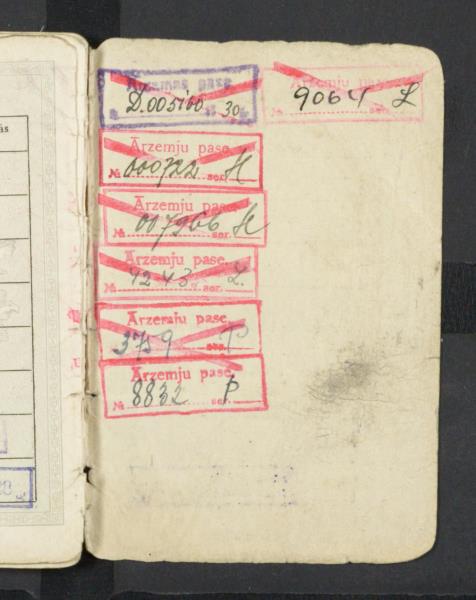 Ārzemju pase
D.005160 30.
Ārzemju pase
№ 9064 L
Ārzemju pase
№ 000722 ser. H
Ārzemju pase
007966 ser. H
Ārzemju pase
№ 4243 ser. L.
Ārzemju pase
3759 ser. P
Ārzemju pase
№ 8832 ser. P